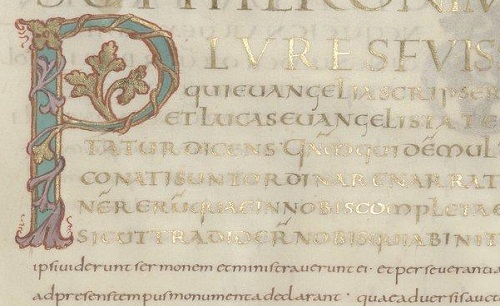 HIERONIM
PLURES FUIS
QUI EUANGELIA SCRIPSER
ET LUCAS EUANGELISTA TE
TATUR DICENS QNM̄ QUIDĒM MUL
CONATI SUNT ORDINARE NARRAT
NĒR ERŪ QUAE IN NOBIS COMPLETAE
SICUT TRADIDER̄ NOBIS QUI AB INIT
ipsi uiderunt sermonem et ministrauerunt ei · et perseuerantia
ad presens tempus monumenta declarant · quae a diuersis auct